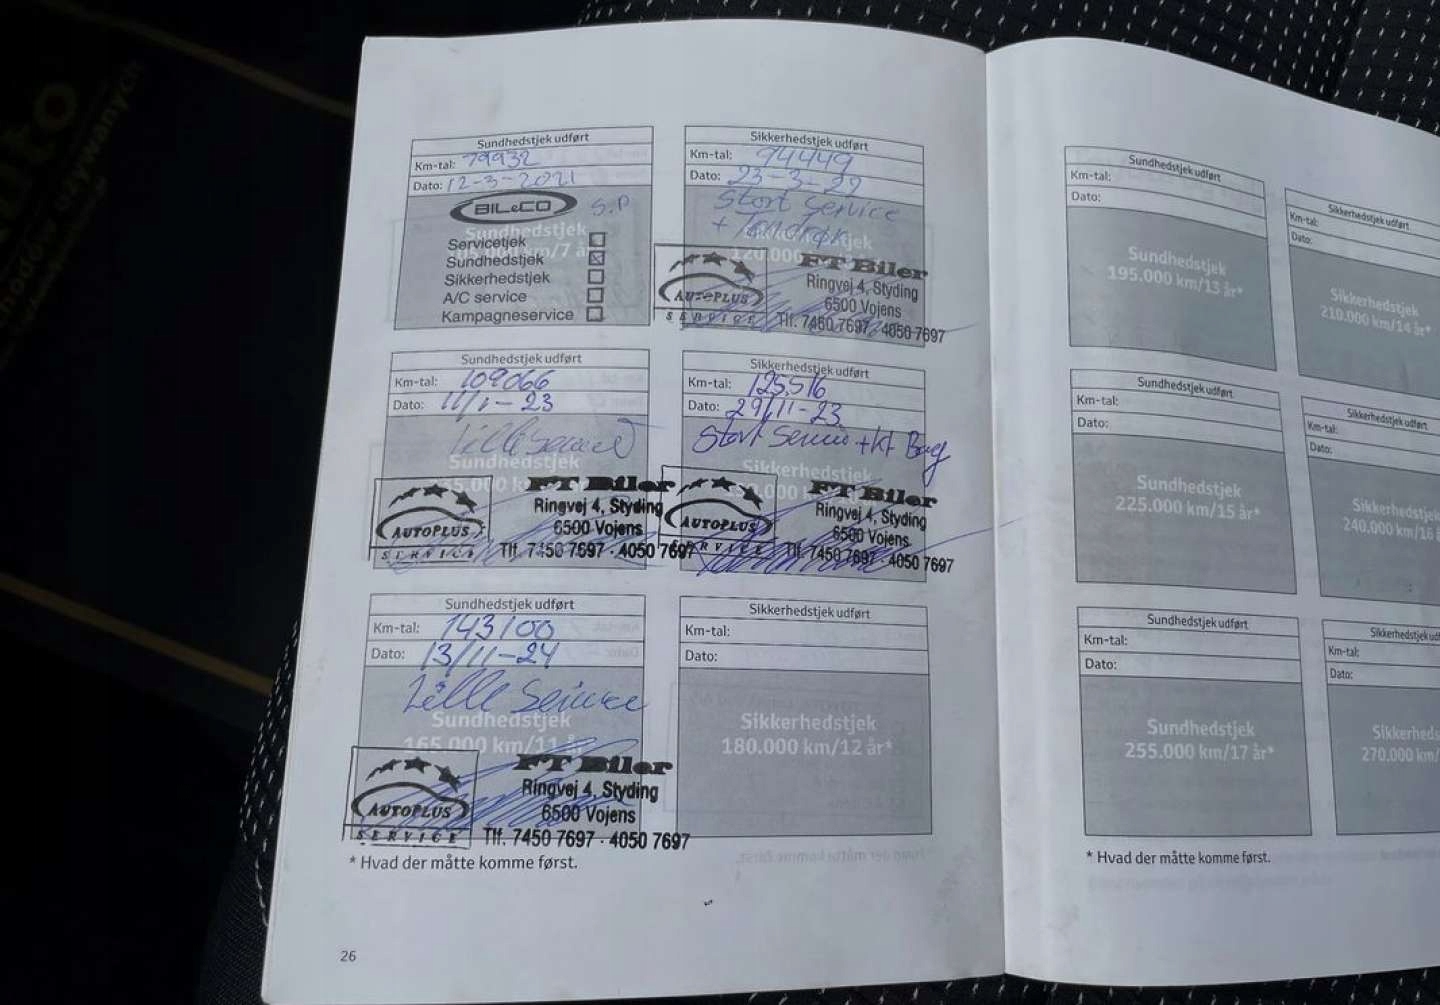 Sundhedstjek udført
Km-tal: 79932
Dato: 12-3-2021
BILeCO S.P
Sundhedstjek
Servicetjek
Sundhedstjek
Sikkerhedstjek
A/C service
Kampagneservice
Sikkerhedstjek udført
Km-tal: 94449
Dato: 23-3-22
Stort Service
+ Tandrem
FT Biler
Ringvej 4, Styding
6500 Vojens
Tlf. 7450 7697 · 4050 7697
AUTOPLUS
SERVICE
Sundhedstjek udført
Km-tal: 109066
Dato: 11/1-23
Lille Service
Sundhedstjek
FT Biler
Ringvej 4, Styding
6500 Vojens
Tlf. 7450 7697 · 4050 7697
AUTOPLUS
SERVICE
Sikkerhedstjek udført
Km-tal: 125.516
Dato: 29/11-23
Stort Service + kl Bag
Sikkerhedstjek
FT Biler
Ringvej 4, Styding
6500 Vojens
Tlf. 7450 7697 · 4050 7697
AUTOPLUS
SERVICE
Sundhedstjek udført
Km-tal: 143100
Dato: 13/11-24
Lille Service
Sundhedstjek
165.000 km/11 år
FT Biler
Ringvej 4, Styding
6500 Vojens
Tlf. 7450 7697 · 4050 7697
AUTOPLUS
SERVICE
Sikkerhedstjek udført
Km-tal:
Dato:
Sikkerhedstjek
180.000 km/12 år*
* Hvad der måtte komme først.
26
Sundhedstjek udført
Km-tal:
Dato:
Sundhedstjek
195.000 km/13 år*
Sikkerhedstjek udført
Km-tal:
Dato:
Sikkerhedstjek
210.000 km/14 år*
Sundhedstjek udført
Km-tal:
Dato:
Sundhedstjek
225.000 km/15 år*
Sikkerhedstjek udført
Km-tal:
Dato:
Sikkerhedstjek
240.000 km/16
Sundhedstjek udført
Km-tal:
Dato:
Sundhedstjek
255.000 km/17 år*
Sikkerhedstjek udf
Km-tal:
Dato:
Sikkerheds
270.000 km/
* Hvad der måtte komme først.